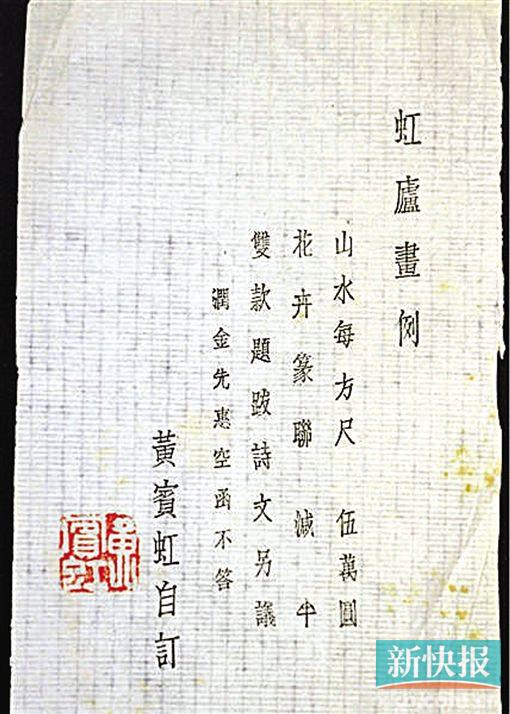 虹廬畫例
山水每方尺 伍萬圓
花卉篆聯 減半
雙款題跋詩文另議
潤金先惠空函不答
黃賓虹自訂
黃賓虹
新快报